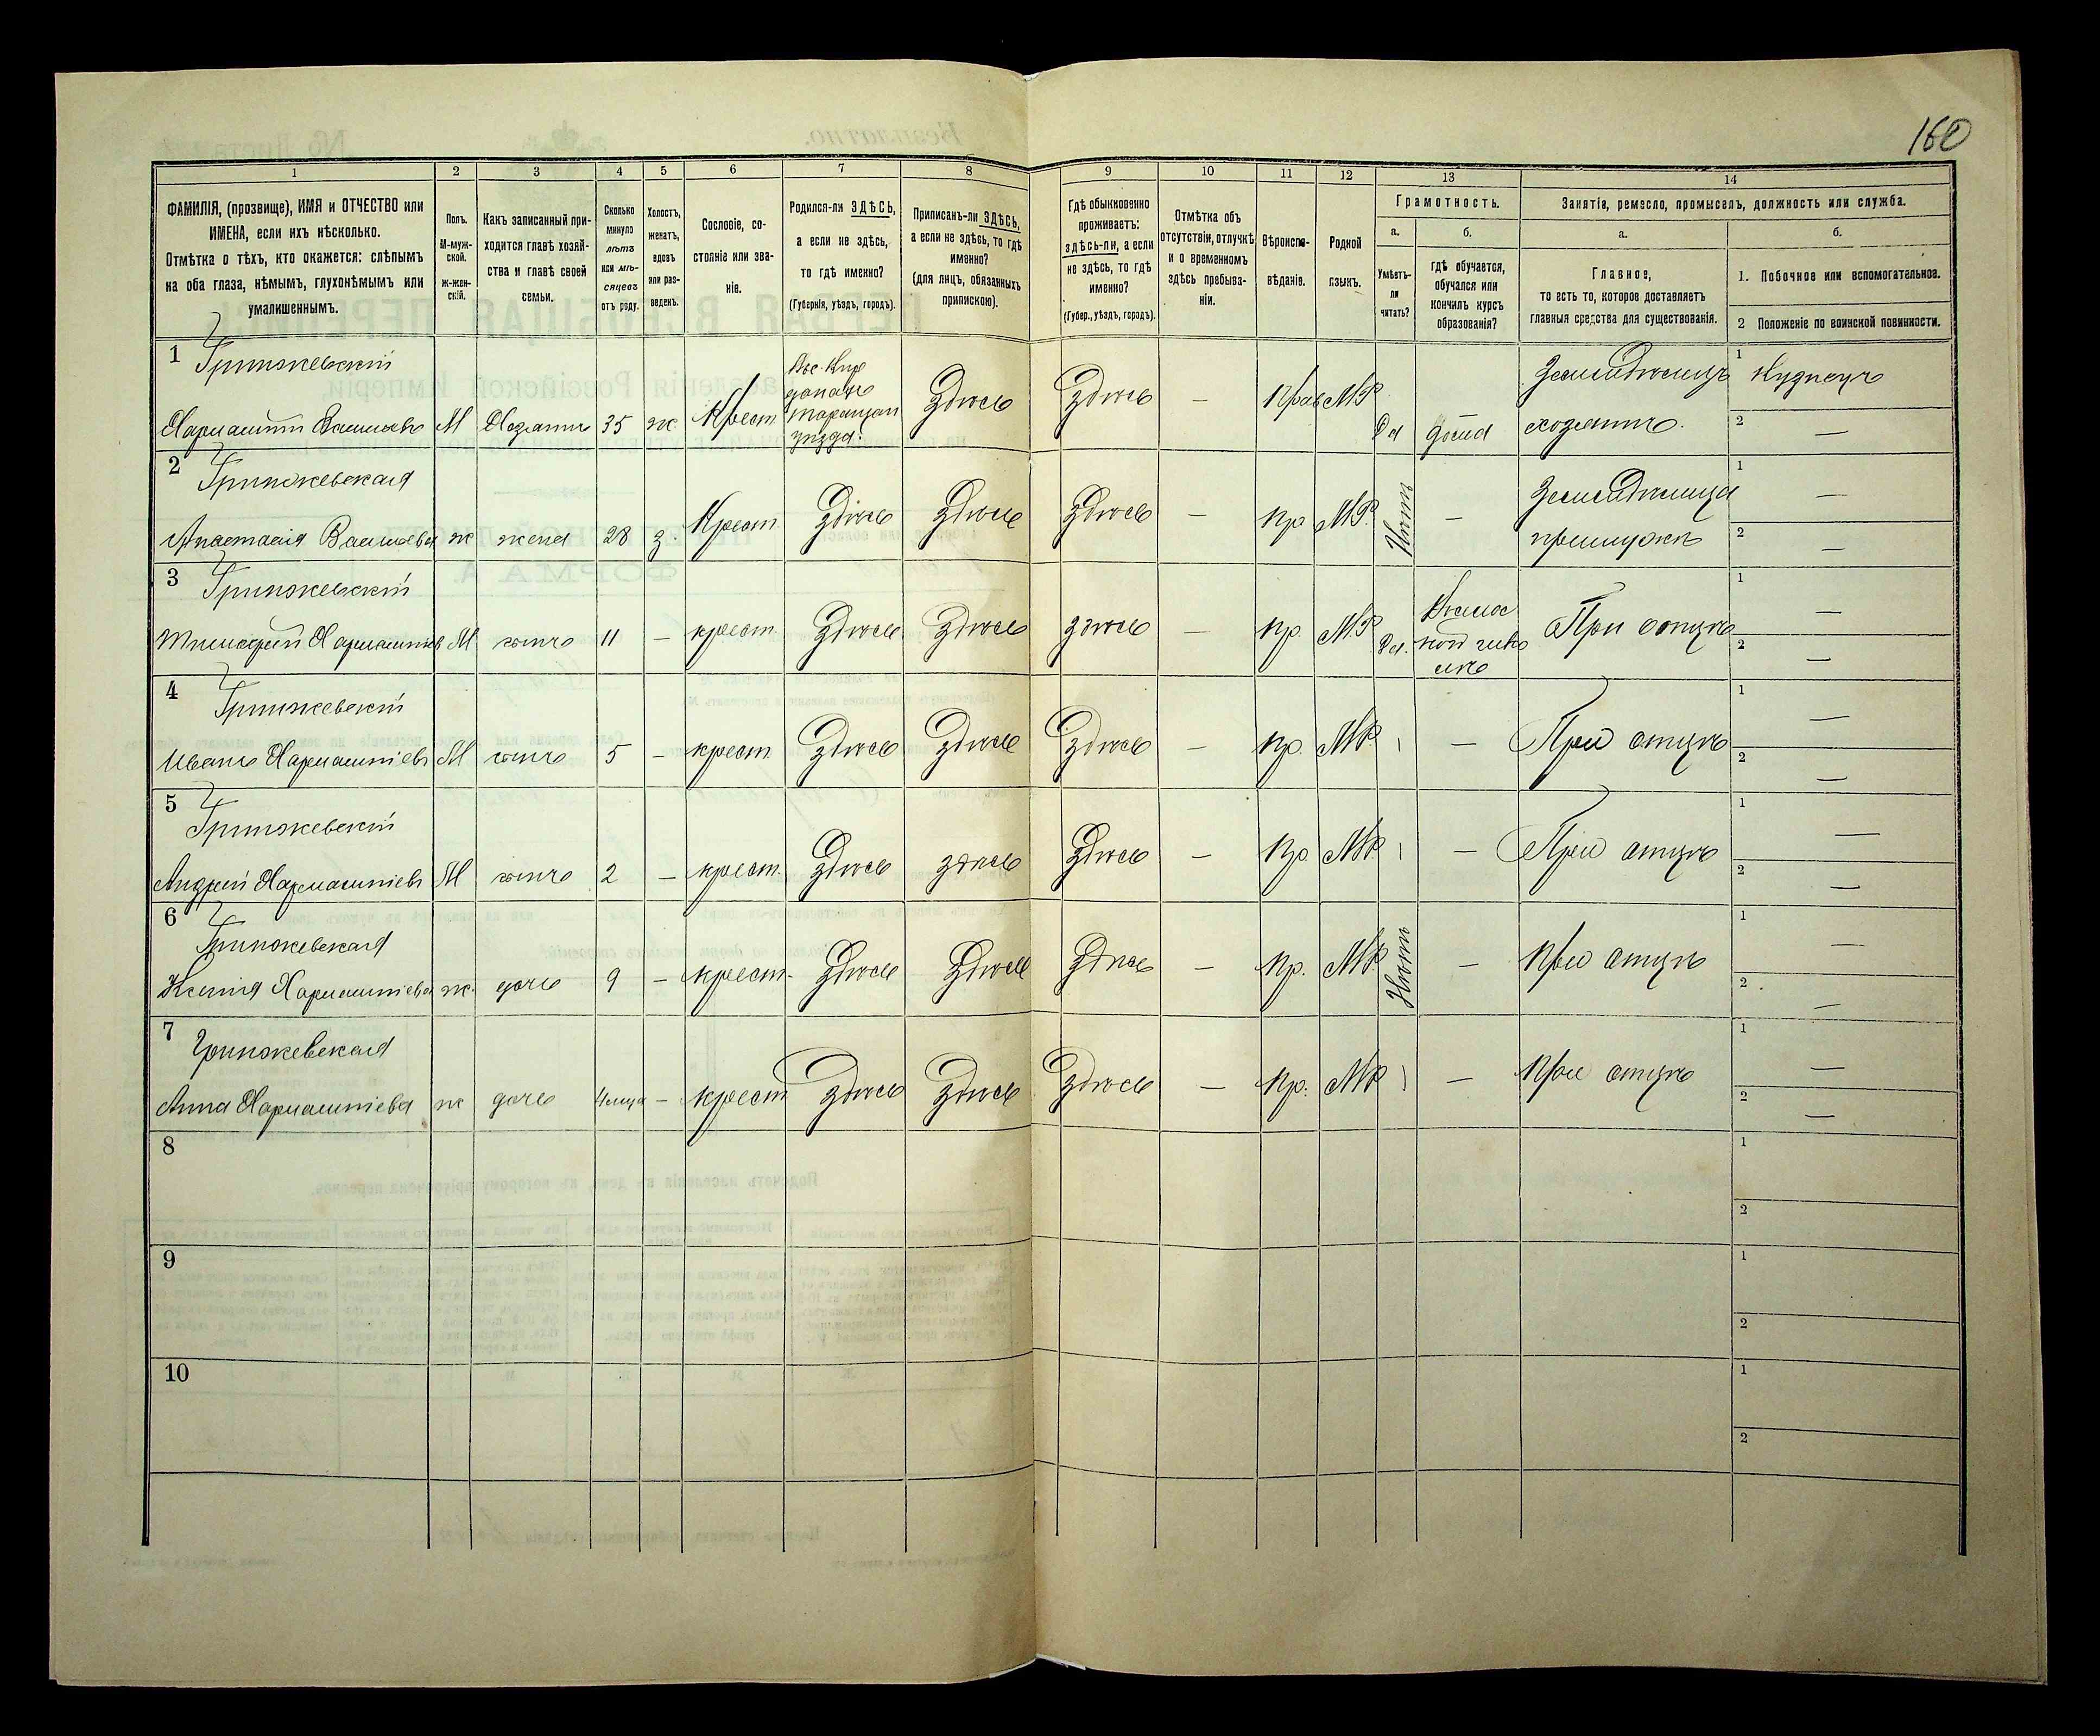 160
1 2 3 4 5 6 7 8 9 10 11 12 13 14
ФАМИЛІЯ, (прозвище), ИМЯ и ОТЧЕСТВО или
ИМЕНА, если ихъ нѣсколько.
Отмѣтка о тѣхъ, кто окажется: слѣпымъ
на оба глаза, нѣмымъ, глухонѣмымъ или
умалишеннымъ.
Полъ.
М-муж-
ской.
Ж-жен-
скій.
Какъ записанный при-
ходится главѣ хозяй-
ства и главѣ своей
семьи.
Сколько
минуло
лѣтъ
или мѣ-
сяцевъ
отъ роду.
Холостъ,
женатъ,
вдовъ
или раз-
веденъ.
Сословіе, со-
стояніе или зва-
ніе.
Родился-ли ЗДѢСЬ,
а если не здѣсь,
то гдѣ именно?
(Губернія, уѣздъ, городъ).
Приписанъ-ли ЗДѢСЬ,
а если не здѣсь, то гдѣ
именно?
(для лицъ, обязанныхъ
припискою).
Гдѣ обыкновенно
проживаетъ:
здѣсь-ли, а если
не здѣсь, то гдѣ
именно?
(Губер., уѣздъ, городъ).
Отмѣтка объ
отсутствіи, отлучкѣ
и о временномъ
здѣсь пребыва-
ніи.
Вѣроиспо-
вѣданіе.
Родной
языкъ.
Грамотность.
а.
Умѣетъ-
ли
читать?
б.
гдѣ обучается,
обучался или
кончилъ курсъ
образованія?
Занятія, ремесло, промыселъ, должность или служба.
а.
Главное,
то есть то, которое доставляетъ
главныя средства для существованія.
б.
1. Побочное или вспомогательное.
2 Положеніе по воинской повинности.
1 Гринжевскій
Харлампій Васильевъ М Хозяинъ 35 ж. Крест
Таращан
уѣзда.
Здѣсь Здѣсь — Прав М.Р. Да дома
Земледѣлецъ
хозяинъ.
1 Кузнецъ
2 —
2 Гринжевская
Анастасія Васильева ж жена 28 з. Крест Здѣсь Здѣсь Здѣсь — пр М.Р. Нѣтъ —
Земледѣлица
при мужѣ
1 —
2 —
3 Гринжевскій
Тимофей Харлампіевъ М сынъ 11 — крест. Здѣсь Здѣсь здѣсь — пр. М.Р. Да.
При отцѣ
1 —
2 —
4 Гринжевскій
Иванъ Харлампіевъ М сынъ 5 — крест. Здѣсь Здѣсь Здѣсь — пр. М.Р. — При отцѣ
1 —
2 —
5 Гринжевскій
Андрей Харлампіевъ М сынъ 2 — крест. Здѣсь здѣсь Здѣсь — пр. М.Р. — При отцѣ
1 —
2 —
6 Гринжевская
Ксенія Харлампіева ж. дочь 9 — крест. Здѣсь Здѣсь Здѣсь — пр. М.Р. Нѣтъ — При отцѣ
1 —
2 —
7 Гринжевская
Анна Харлампіева ж дочь 4 мца — крест Здѣсь Здѣсь Здѣсь — пр. М.Р. — При отцѣ
1 —
2 —
8 1
2
9 1
2
10 1
2